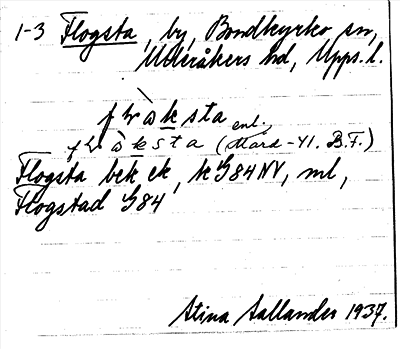 1-3 Flogsta, by, Bondkyrko sn,
Ulleråkers hd, Upps. l.
enl.
(Mard -41. B.F.)
Flogsta bek ek, k G84NV, ml,
Flogstad G84
Stina Sallander 1937.